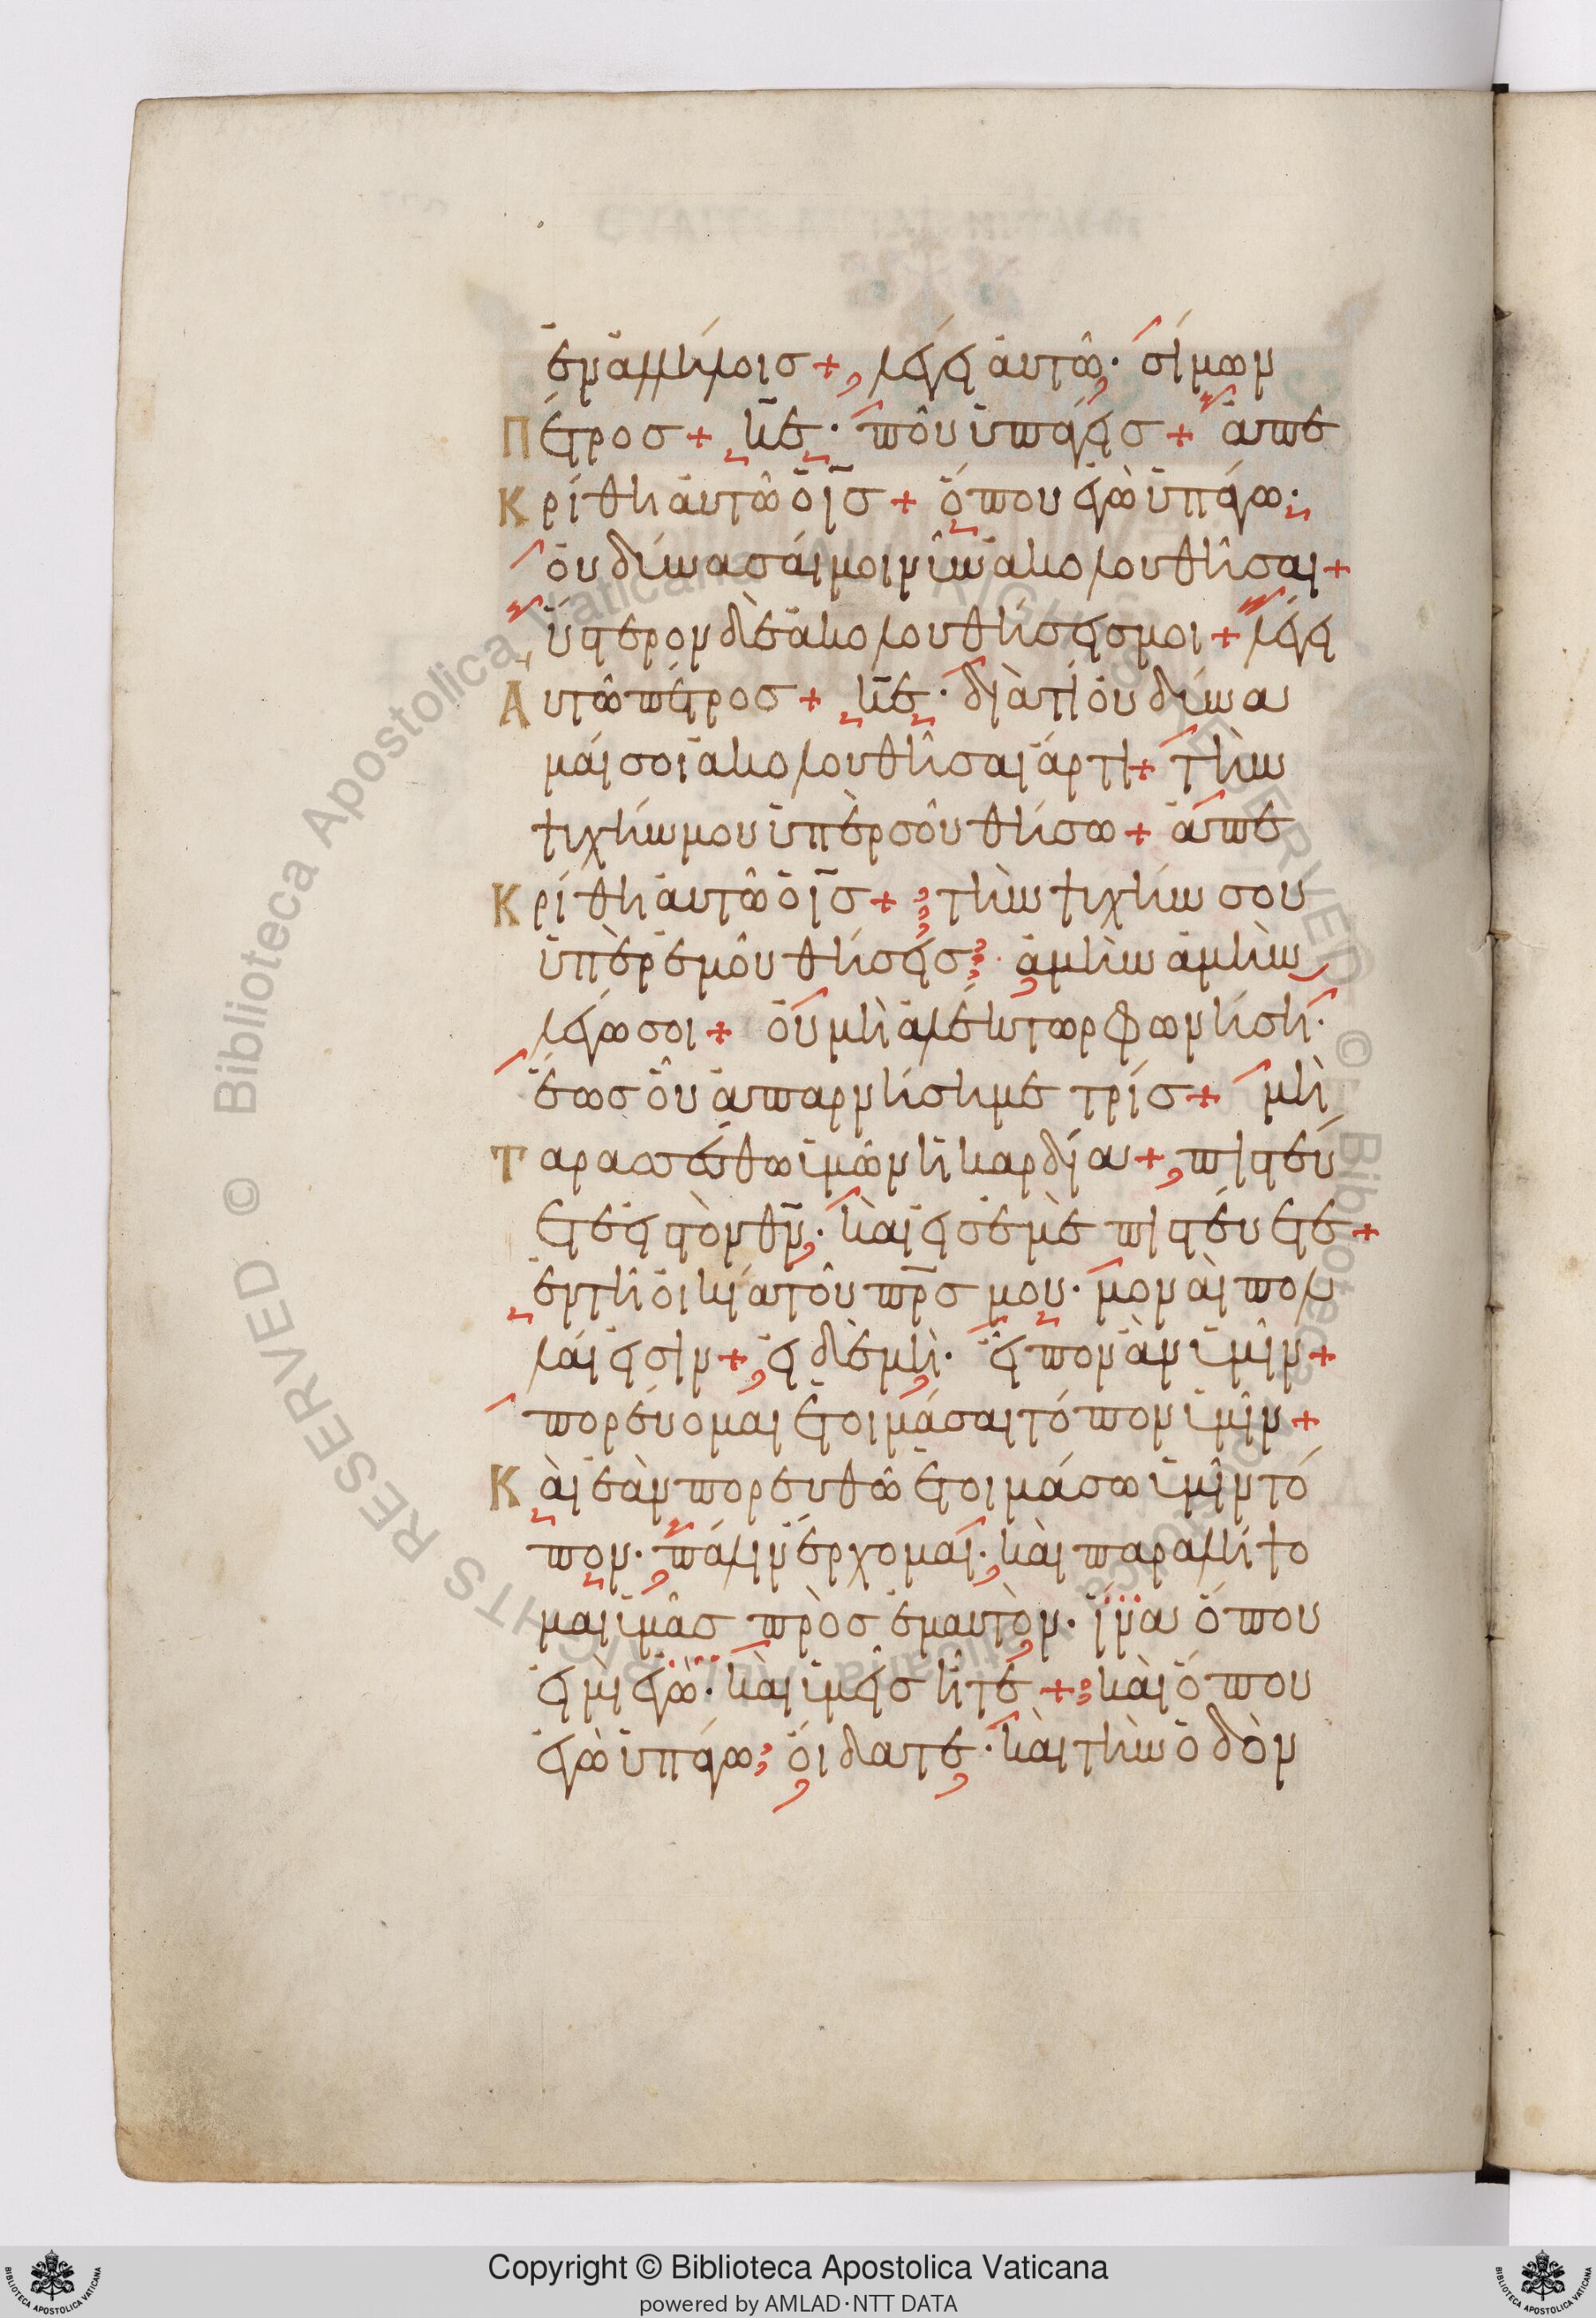 ἐν ἀλλήλοις + λέγει αὐτῶ· σίμων
Πέτρος + κ̅ε̅· ποῦ ὑπάγεις + ἀπε
Κρίθη αὐτῶ ὁ ι̅σ̅ + ὅπου ἐγὼ ὑπάγω·
οὐ δύνασαί μοι νῦν ἀκολουθῆσαι +
ὕστερον δὲ ἀκολουθήσεις μοι + λέγει
Αυτῶ πέτρος + κ̅ε̅· διὰ τί οὐ δύνα
μαί σοι ἀκολουθῆσαι ἄρτι + τὴν
ψυχήν μου ὑπὲρ σοῦ θήσω + ἀπε
Κρίθη αὐτῶ ὁ ι̅σ̅ + τὴν ψυχήν σου
ὑπὲρ ἐμοῦ θήσεις· ἀμὴν ἀμὴν
λέγω σοι + οὐ μὴ ἀλέκτωρ φωνήση·
ἕως οὗ ἀπαρνήση με τρίς + μὴ
Ταρασσέσθω ὑμῶν ἡ καρδία + πιστεύ
ετε εἰς τὸν θ̅ν̅· καὶ εἰς ἐμὲ πιστεύετε +
ἐν τῆ οἰκία τοῦ π̅ρ̅σ̅ μου· μοναὶ πολ
λαί εἰσιν + εἰ δὲ μὴ· εἶπον ἂν ὑμῖν +
πορεύομαι ἑτοιμάσαι τόπον ὑμῖν +
Καὶ ἐὰν πορευθῶ ἑτοιμάσω ὑμῖν τό
πον· πάλιν ἔρχομαι· καὶ παραλήψο
μαι ὑμᾶς πρὸς ἐμαυτὸν· ἵνα ὅπου
εἰμὶ ἐγὼ· καὶ ὑμεῖς ἦτε + καὶ ὅπου
ἐγὼ ὑπάγω οἴδατε· καὶ τὴν ὁδὸν
© Biblioteca Apostolica Vaticana, ALL RIGHTS RESERVED
Copyright © Biblioteca Apostolica Vaticana
powered by AMLAD·NTT DATA
BIBLIOTECA APOSTOLICA VATICANA
BIBLIOTECA APOSTOLICA VATICANA